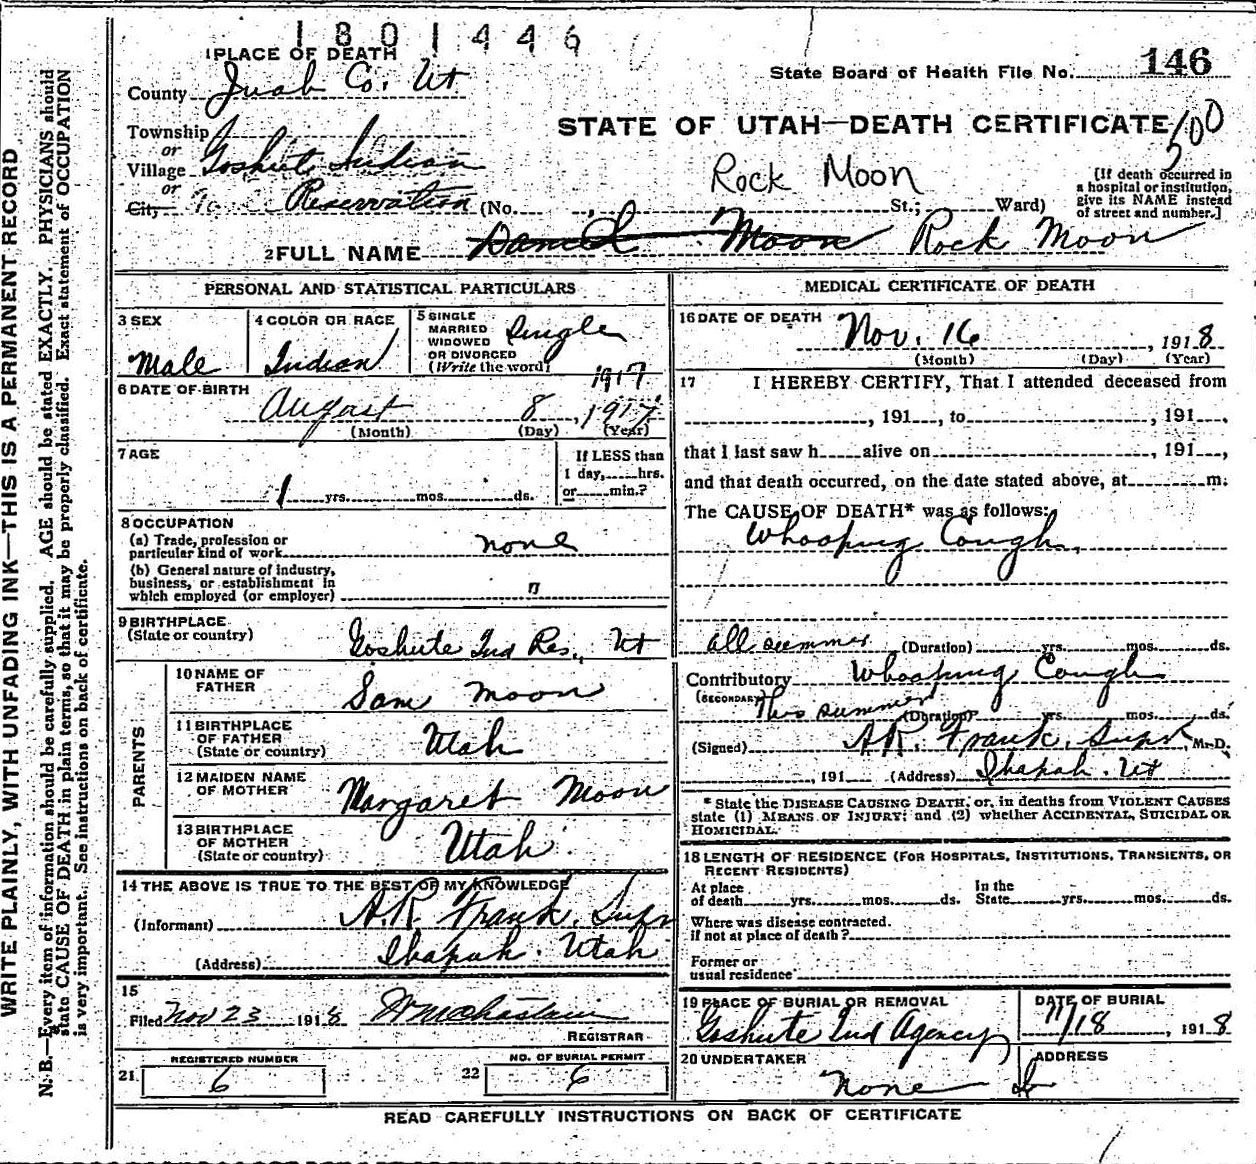 1801446
1 PLACE OF DEATH
State Board of Health File No. 146
County Juab Co. Ut
STATE OF UTAH—DEATH CERTIFICATE
500
Township
or
Village Goshute Indian
or
City Reservation (No. St.; Ward)
Rock Moon
[If death occurred in
a hospital or institution,
give its NAME instead
of street and number.]
2 FULL NAME Daniel Moon Rock Moon
PERSONAL AND STATISTICAL PARTICULARS
3 SEX
Male
4 COLOR OR RACE
Indian
5 SINGLE
MARRIED
WIDOWED
OR DIVORCED
(Write the word)
Single
6 DATE OF BIRTH
1917
August 8, 1917
(Month) (Day) (Year)
7 AGE
1 yrs. mos. ds.
If LESS than
1 day, hrs.
or min.?
8 OCCUPATION
(a) Trade, profession or
particular kind of work none
(b) General nature of industry,
business, or establishment in
which employed (or employer) "
9 BIRTHPLACE
(State or country) Goshute Ind Res., Ut
PARENTS
10 NAME OF
FATHER Sam Moon
11 BIRTHPLACE
OF FATHER
(State or country) Utah
12 MAIDEN NAME
OF MOTHER Margaret Moon
13 BIRTHPLACE
OF MOTHER
(State or country) Utah
14 THE ABOVE IS TRUE TO THE BEST OF MY KNOWLEDGE
(Informant) A.R. Frank, Supt
(Address) Ibapah. Utah
15
Filed Nov 23 1918
REGISTRAR
21. REGISTERED NUMBER
6
22 NO. OF BURIAL PERMIT
6
MEDICAL CERTIFICATE OF DEATH
16 DATE OF DEATH
Nov. 16, 1918
(Month) (Day) (Year)
17 I HEREBY CERTIFY, That I attended deceased from
, 191 , to , 191 ,
that I last saw h alive on , 191 ,
and that death occurred, on the date stated above, at m.
The CAUSE OF DEATH* was as follows:
Whooping Cough,
all summer (Duration) yrs. mos. ds.
Contributory Whooping Cough
(SECONDARY) This summer (Duration) yrs. mos. ds.
(Signed) A.R. Frank, Supt, M.D.
, 191 (Address) Ibapah. Ut
* State the DISEASE CAUSING DEATH, or, in deaths from VIOLENT CAUSES
state (1) MEANS OF INJURY; and (2) whether ACCIDENTAL, SUICIDAL OR
HOMICIDAL.
18 LENGTH OF RESIDENCE (FOR HOSPITALS, INSTITUTIONS, TRANSIENTS, OR
RECENT RESIDENTS)
At place
of death yrs. mos. ds.
In the
State yrs. mos. ds.
Where was disease contracted.
if not at place of death?
Former or
usual residence
19 PLACE OF BURIAL OR REMOVAL
Goshute Ind Agency
DATE OF BURIAL
11/18, 1918
20 UNDERTAKER
None
ADDRESS
READ CAREFULLY INSTRUCTIONS ON BACK OF CERTIFICATE
WRITE PLAINLY, WITH UNFADING INK—THIS IS A PERMANENT RECORD
N. B.—Every item of information should be carefully supplied. AGE should be stated EXACTLY. PHYSICIANS should
state CAUSE OF DEATH in plain terms, so that it may be properly classified. Exact statement of OCCUPATION
is very important. See instructions on back of certificate.